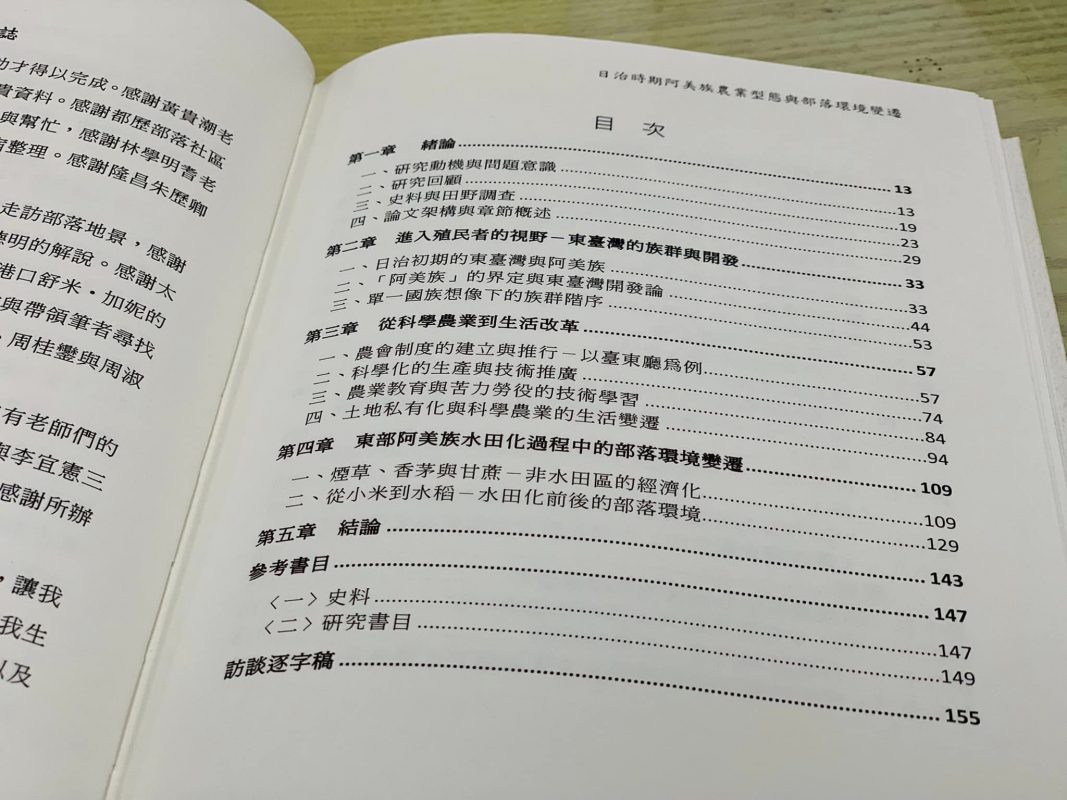 誌
力才得以完成。感謝黃貴潮老
貴資料。感謝都歷部落社區
與幫忙，感謝林學明耆老
整理。感謝隆昌朱歷卿
走訪部落地景，感謝
德明的解說。感謝太
港口舒米·加妮的
與帶領筆者尋找
周桂鑾與周淑
有老師們的
與李宜憲三
感謝所辦
，讓我
我生
以及
日治時期阿美族農業型態與部落環境變遷
目 次
第一章 緒論 13
一、研究動機與問題意識 13
二、研究回顧 19
三、史料與田野調查 23
四、論文架構與章節概述 29
第二章 進入殖民者的視野－東臺灣的族群與開發 33
一、日治初期的東臺灣與阿美族 33
二、「阿美族」的界定與東臺灣開發論 44
三、單一國族想像下的族群階序 53
第三章 從科學農業到生活改革 57
一、農會制度的建立與推行－以臺東廳為例 57
二、科學化的生產與技術推廣 74
三、農業教育與苦力勞役的技術學習 84
四、土地私有化與科學農業的生活變遷 94
第四章 東部阿美族水田化過程中的部落環境變遷 109
一、煙草、香茅與甘蔗－非水田區的經濟化 109
二、從小米到水稻－水田化前後的部落環境 129
第五章 結論 143
參考書目 147
〈一〉史料 147
〈二〉研究書目 149
訪談逐字稿 155